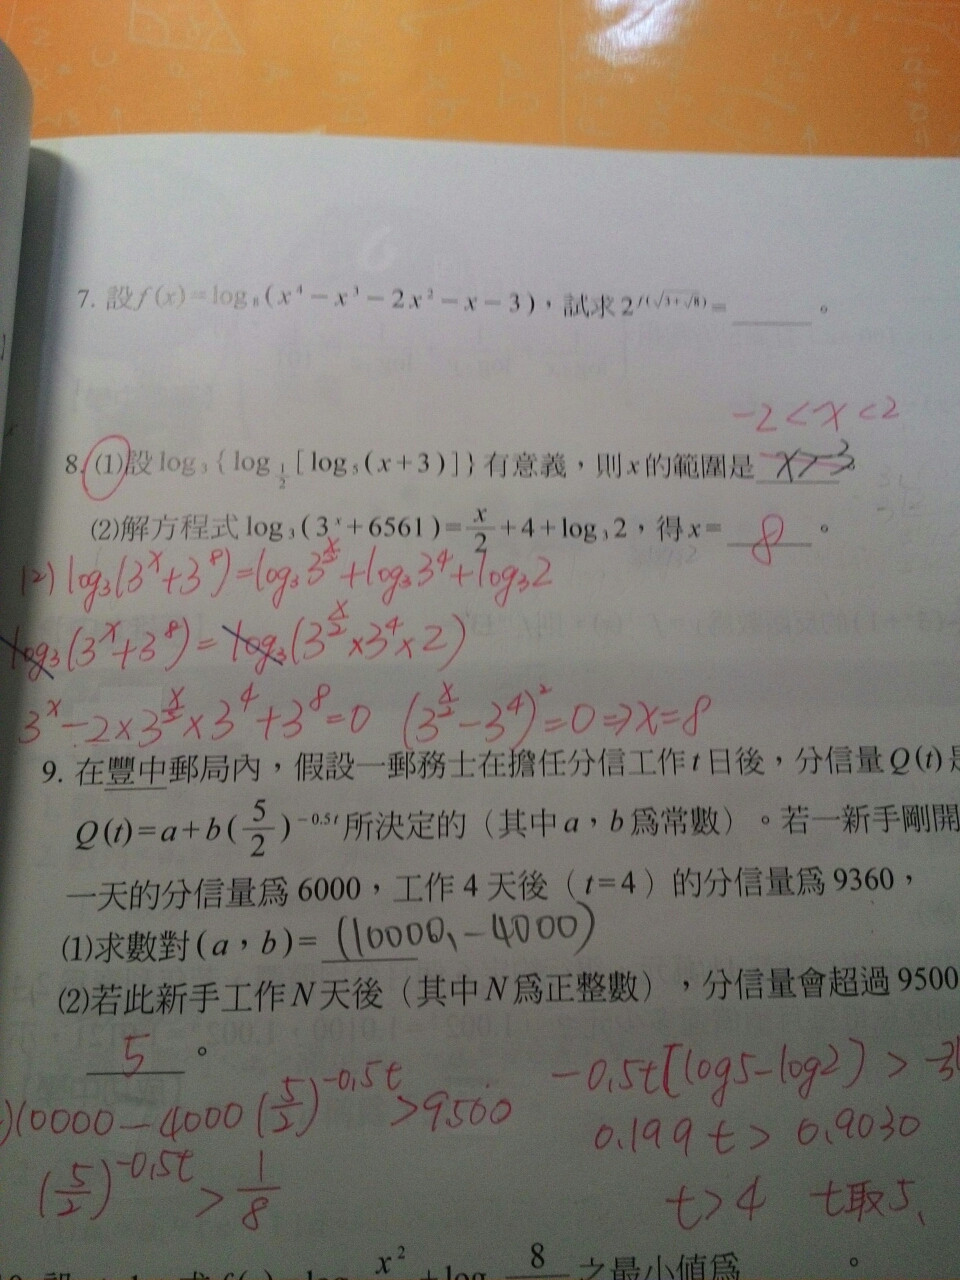 7. 設f(x)=log₈(x⁴－x³－2x²－x－3)，試求2^{f(√(3+√8))}=______。
-2<x<2
8. (1)設log₃{log_{1/2}[log₅(x+3)]}有意義，則x的範圍是 x>3。
(2)解方程式log₃(3ˣ+6561)=x/2+4+log₃2，得x= 8 。
(2) log₃(3ˣ+3⁸)=log₃3^{x/2}+log₃3⁴+log₃2
log₃(3ˣ+3⁸)=log₃(3^{x/2}×3⁴×2)
3ˣ-2×3^{x/2}×3⁴+3⁸=0 (3^{x/2}-3⁴)²=0⇒x=8
9. 在豐中郵局內，假設一郵務士在擔任分信工作t日後，分信量Q(t)是
Q(t)=a+b(5/2)^{-0.5t}所決定的（其中a，b為常數）。若一新手剛開
一天的分信量為6000，工作4天後（t=4）的分信量為9360，
(1)求數對(a，b)= (10000、-4000)
(2)若此新手工作N天後（其中N為正整數），分信量會超過9500
5 。
)10000-4000(5/2)^{-0.5t}>9500
(5/2)^{-0.5t}>1/8
-0.5t[log5-log2)>-3
0.199t>0.9030
t>4 t取5、
x²
8
之最小值為______。